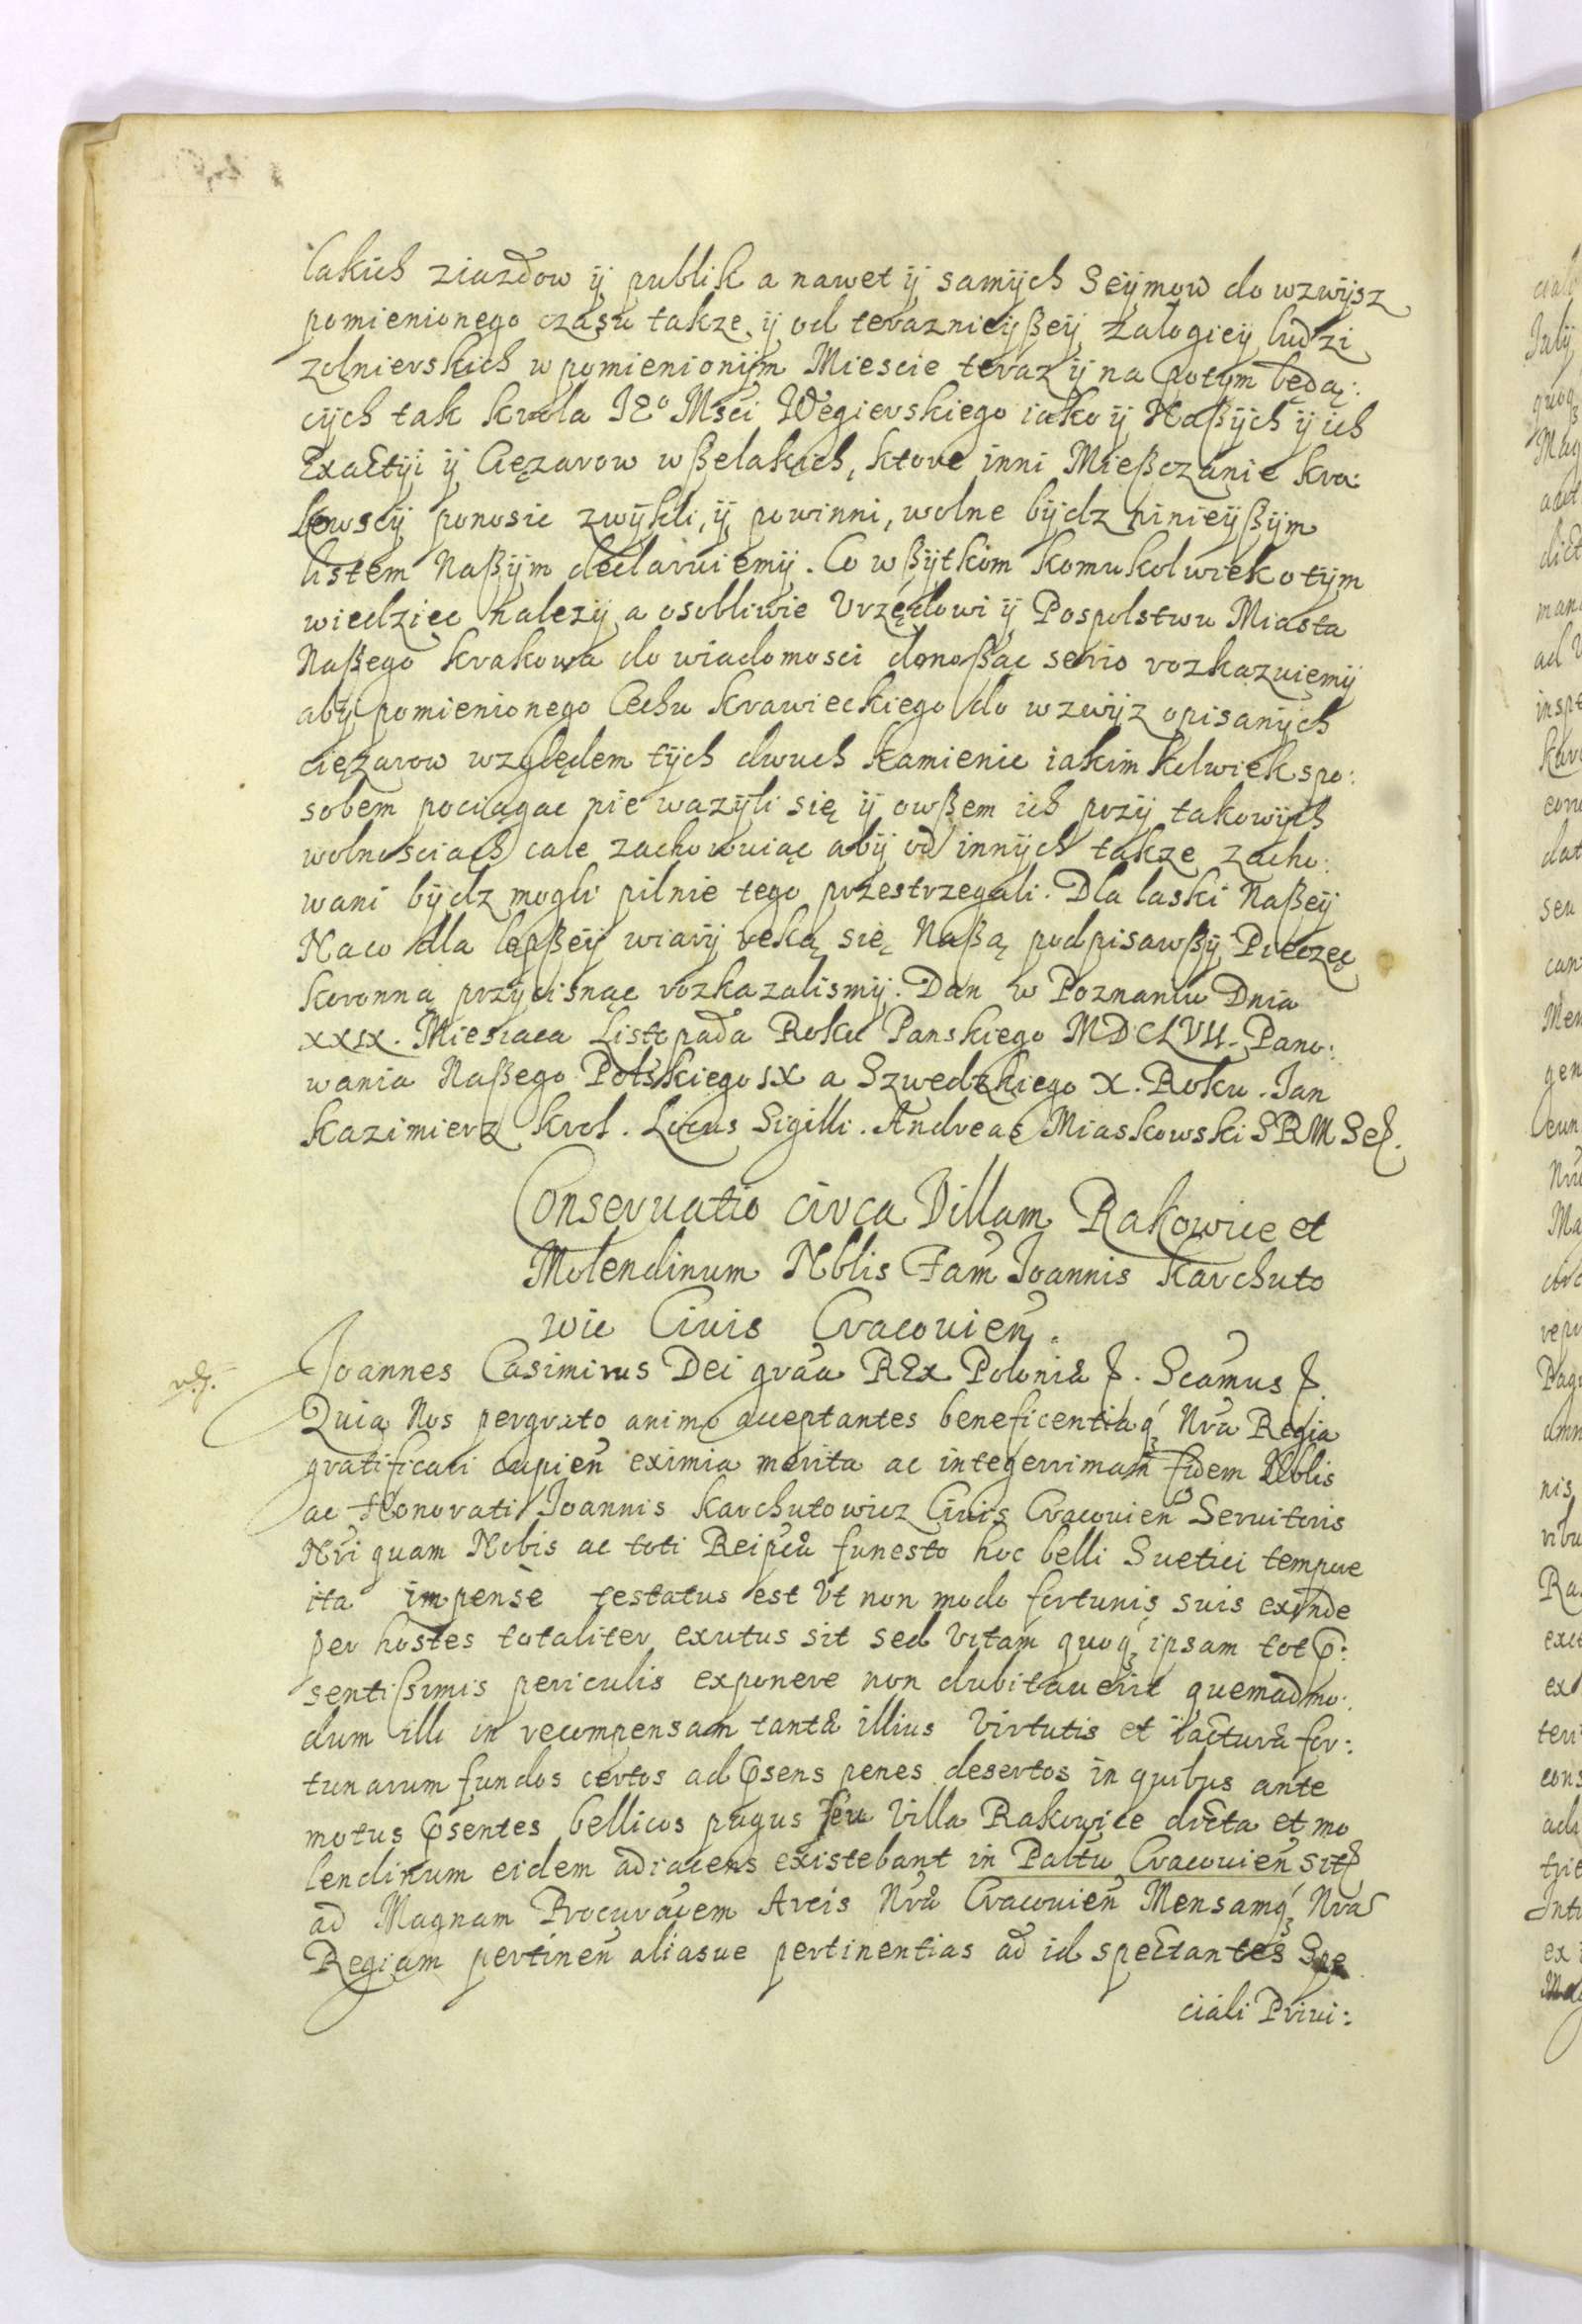 lakich ziazdow ÿ publik a nawet ÿ samÿch Seÿmow do wzwÿsz
pomienionego czasu takze ÿ od teraznieÿßeÿ zalogieÿ ludzi
zolnierskich w pomienionÿm Miescie teraz ÿ na potÿm będą:
cÿch tak krola JEº Msci Wegierskiego iako ÿ Naßÿch ÿ ich
Exactÿi ÿ Cięzarow wßelakich, ktore inni Mießczanie kra:
kowscÿ ponosic zwÿkli, ÿ powinni, wolne bÿdz ninieÿßÿm
listem Naßÿm declaruiemÿ. Co wßÿtkim komukolwiek o tÿm
wiedziec nalezÿ a osobliwie Vrzędowi ÿ Pospolstwu Miasta
Naßego krakowa do wiadomosci donoßąc serio rozkazuiemÿ
abÿ pomienionego Cechu krawieckiego do wzwÿz opisanÿch
cięzarow względem tÿch dwuch kamienic iakimkolwiek spo:
sobem pociągac nie wazÿli się ÿ owßem ich przÿ takowÿch
wolnosciach cale zachowuiąc abÿ od innÿch takze zacho:
wani bÿdz mogli pilnie tego przestrzegali. Dla laski Naßeÿ
Na co dla lepßeÿ wiarÿ ręką się Naßą podpisawßÿ Pieczęc
koronną przÿcisnąc rozkazalismÿ. Dan w Poznaniu Dnia
XXIX. Miesiaca Listopada Roku Panskiego MDCLVII. Pano:
wania Naßego Polskiego IX a Szwedzkiego X. Roku. Jan
Kazimierz krol. Locus Sigilli. Andreas Miaskowski SRM Sec.
Conseruatio circa Villam Rakowice et
Molendinum Nblis Fam Joannis Karchuto
wic Ciuis Cracouien.
Joannes Casimirus Dei graa REx Poloniæ &. Scamus &
Quia Nos pergrato animo acceptantes beneficentiaq́ꝫ Nra Regia
gratificari cupien eximia merita ac integerrimam fidem Nblis
ac Honorati Joannis Karchutowicz Ciuis Cracouien Seruitoris
Nri quam Nobis ac toti Reipcæ funesto hoc belli Suetici tempore
ita impensè testatus est Vt non modo fortunis suis exinde
per hostes totaliter exutus sit sed Vitam quoq́ꝫ ipsam tot p̄:
sentissimis periculis exponere non dubitauerit quemadmo:
dum illi in recompensam tantæ illius Virtutis et iacturæ for:
tunarum fundos certos ad p̄sens penes desertos in quibus ante
motus p̄sentes bellicos pagus seu Villa Rakowice dicta et mo
lendinum eidem adiacens existebant in Paltu Cracouien sit
ad Magnam Procuraoem Arcis Nræ Cracouien Mensamq́ꝫ Nra
Regiam pertinen aliasue pertinentias ad id spectantes Spe
ciali Priui: